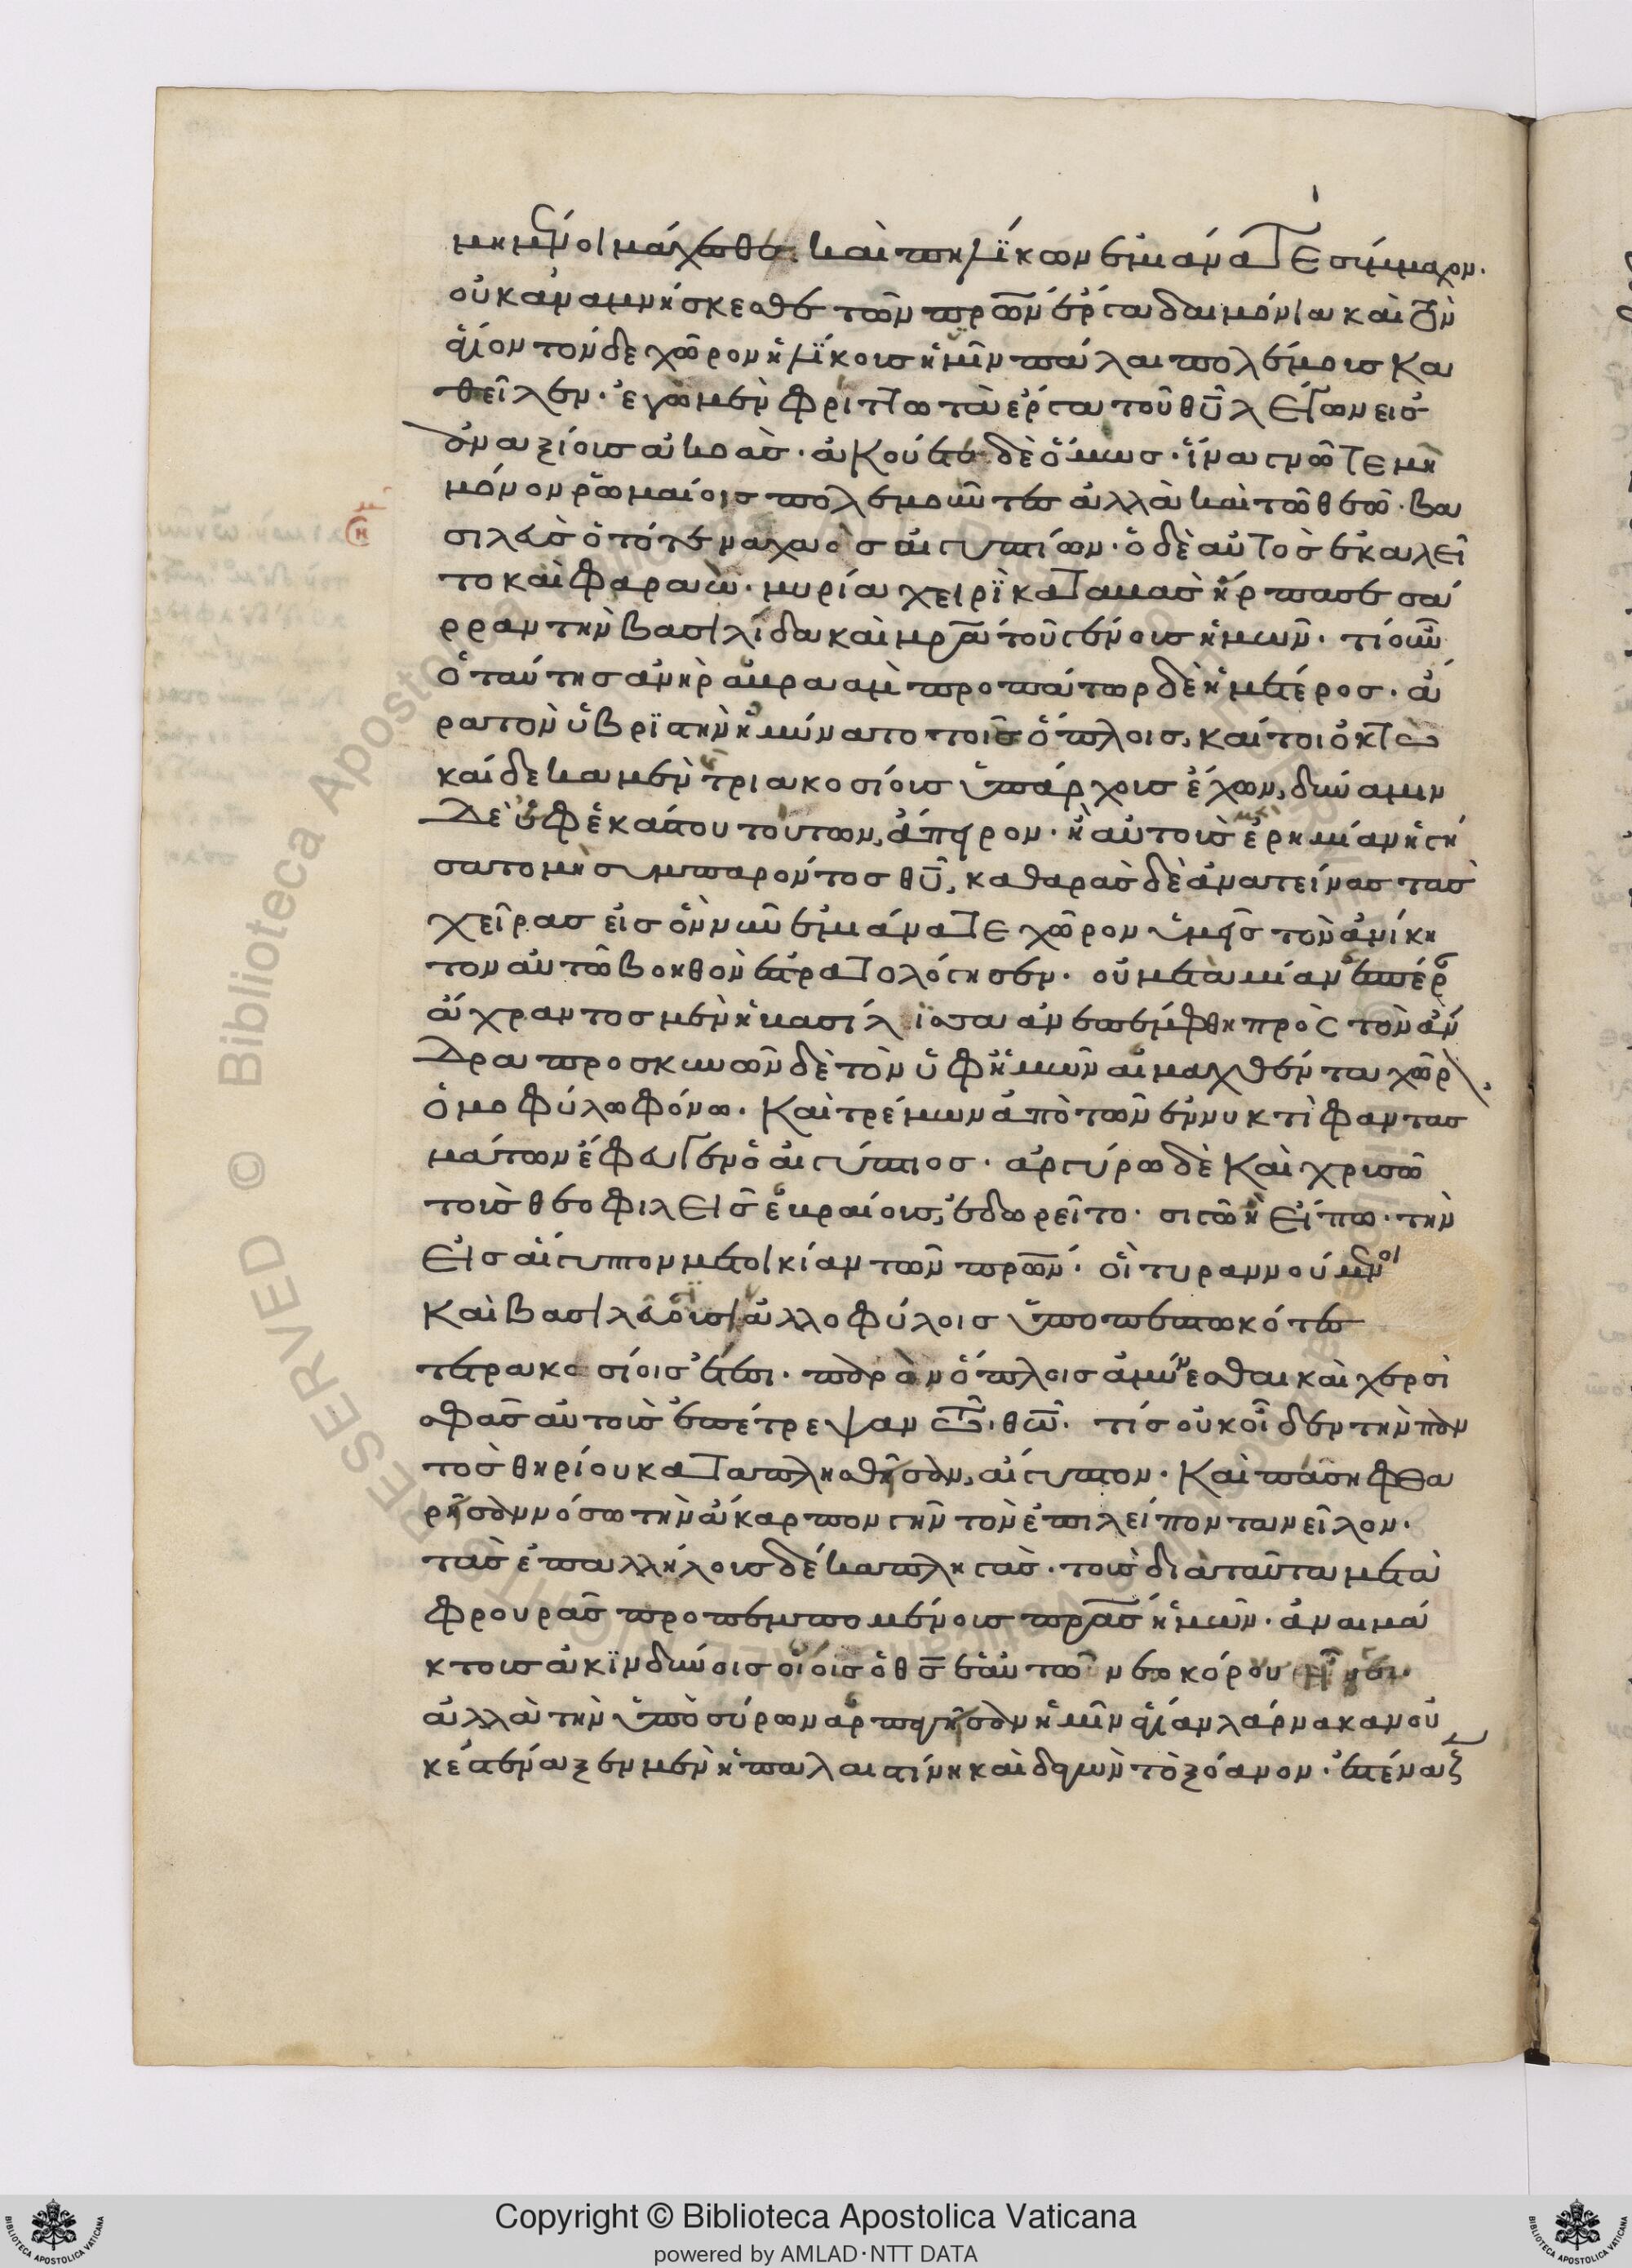 μημένοι μάχεσθε. καὶ πηλίκων ἐμιάνατε σύμμαχον.
οὐκ ἀναμνήσκεσθε τῶν πρων ἔργα δαιμόνια καὶ τὸν
ἅγιον τόνδε χῶρον ἡλίκοις ἡμῖν πάλαι πολέμοις κα
θεῖλεν. ἐγὼ μὲν φρίττω τὰ ἔργα τοῦ θυ λέγων εἰς
ἀναξίοις ἀκοὰς. ἀκούετε δὲ ὅμως. ἵνα γνῶτε μὴ
μόνον ῥωμαίοις πολεμοῦντες ἀλλὰ καὶ τῶ θεῶ. βα
σιλεὺς ὁ τότε ναχαὼς αἰγυπτίων. ὁ δὲ αὐτὸς ἐκαλεῖ
το καὶ φαραὼ. μυρία χειρὶ καταβὰς ἥρπασε σά
ρραν τὴν βασιλίδα καὶ μρα τοῦ γένοις ἡμῶν. τί οὖν
ὁ ταύτης ἀνὴρ ἀβρααμ προπάτωρ δὲ ἡμέτερος. ἆ
ρα τὸν ὑβριστὴν ἠμύνατο τοῖς ὅπλοις, καίτοι ὀκτὼ
καίδεκα μὲν τριακοσίοις ὑπάρχοις ἔχων, δύναμιν
δὲ ὑφ ἑκάστου τούτων, ἄπειρον. ἢ αὐτοις ἐρημίαν ἡγή
σατο μὴ συμπαρόντος θυ, καθαρὰς δὲ ἀνατείνας τὰς
χεῖρας εἰς ὃν νῦν ἐμιάνατε χῶρον ὑμεῖς τὸν ἀνίκη
τον αὐτῶ βοηθὸν ἐστρατολόγησεν. οὐ μετὰ μίαν ἑσπέρ
ἄχραντος μὲν ἡ βασίλισσα ἀνεπέμφθη πρὸς τὸν ἄν
δρα προσκυνῶν δὲ τὸν ὑφ ἡμῶν αἱμαχθέντα χῶρ
ὁμοφύλω φόνω. καὶ τρέμων ἀπὸ τῶν ἐν νυκτὶ φαντασ
μάτων ἔφευγεν ὁ αἰγύπτιος. ἀργύρω δὲ καὶ χρυσῶ
τοὺς θεοφιλεῖς ἑβραίοις, ἐδωρεῖτο. σιγῶ ἢ εἴπω. τὴν
εἰς αἴγυπτον μετοικίαν τῶν πρων. οἳ τυραννούμενοι
καὶ βασιλεῦσι ἀλλοφύλοις ὑποπεπτωκότες
τετρακοσίοις ἔτεσι. παρὸν ὅπλοις ἀμύνεσθαι καὶ χερσὶ
σφᾶς αὐτοὺς ἐπέτρεψαν τῶ θω. τίς οὐκ οἶδεν τὴν παν
τὸς θηρίου καταπλησθεῖσαν, αἴγυπτον. καὶ πάση φθα
ρεῖσαν νόσω τὴν ἄκαρπον γῆν τὸν ἐπιλείποντα νεῖλον.
τὰς ἐπαλλήλοις δέκα πληγὰς. τοὺς διὰ ταῦτα μετὰ
φρουρᾶς προπεμπομένοις πρας ἡμῶν. ἀναιμά
κτοις ἀκινδύνοις οἷοις ὁ θς ἑαυτῶ νεωκόρου
ἀλλὰ τὴν ὑπὸ σύρων ἁρπαγεῖσαν ἡμῖν ἁγίαν λάρνακαν οὐ
κ ἐστέναξεν μὲν ἡ παλαιστίνη καὶ δαγὼν τὸ ξόανον. ἐστέναξ